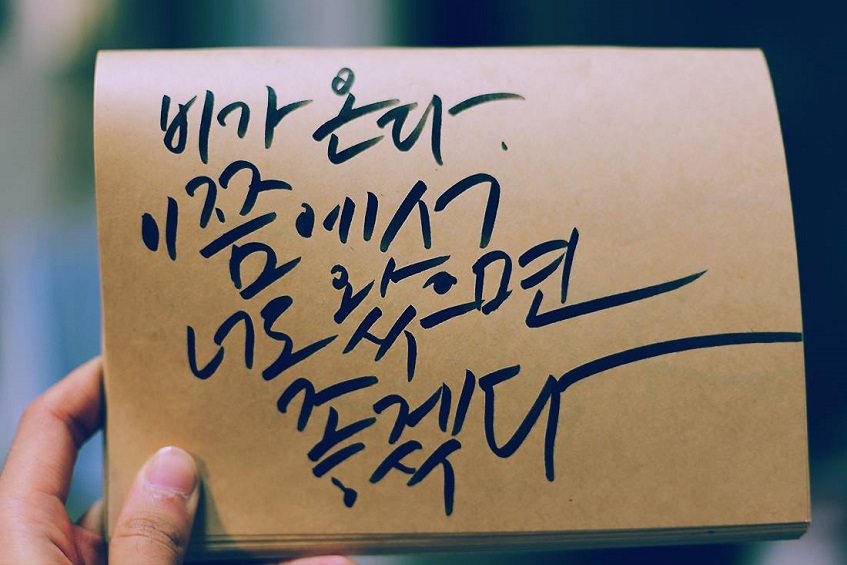 비가 온다.
이쯤에서
너도 왔으면
좋겠다